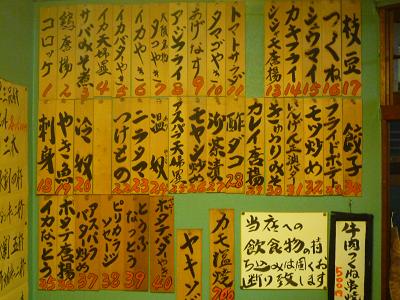 枝豆 17
つくね 16
シウマイ 15
カキフライ 14
シシャモ唐揚 13
トマトサラダ 11
タマゴやき 10
あげなす 9
アジフライ 8
イカやき 7
イカバタやき 5
イカ天婦羅 4
サバみそ煮 3
唐揚 2
コロッケ 1
餃子 34
フライドポテト 33
モツ炒め 32
きゅうりのみ 30
カレイ唐揚 29
酢ダコ 28
お茶漬 27
モヤシ炒め 26
アスパラ天婦羅 25
湯奴 24
ニラタマ 23
つけもの 22
冷奴 20
やき魚 19
刺身 18
ポテタマやき 40
とうふ 39
なっとう
ピリカラ 38
ソーセージ
アスパラ 37
バタ炒め
ホタテ唐揚 36
イカなっとう 35
ヤキソ
カモ塩焼 700
当店への
飲食物の持
ち込みは固くお
断り致します
牛肉つくね串焼 500円